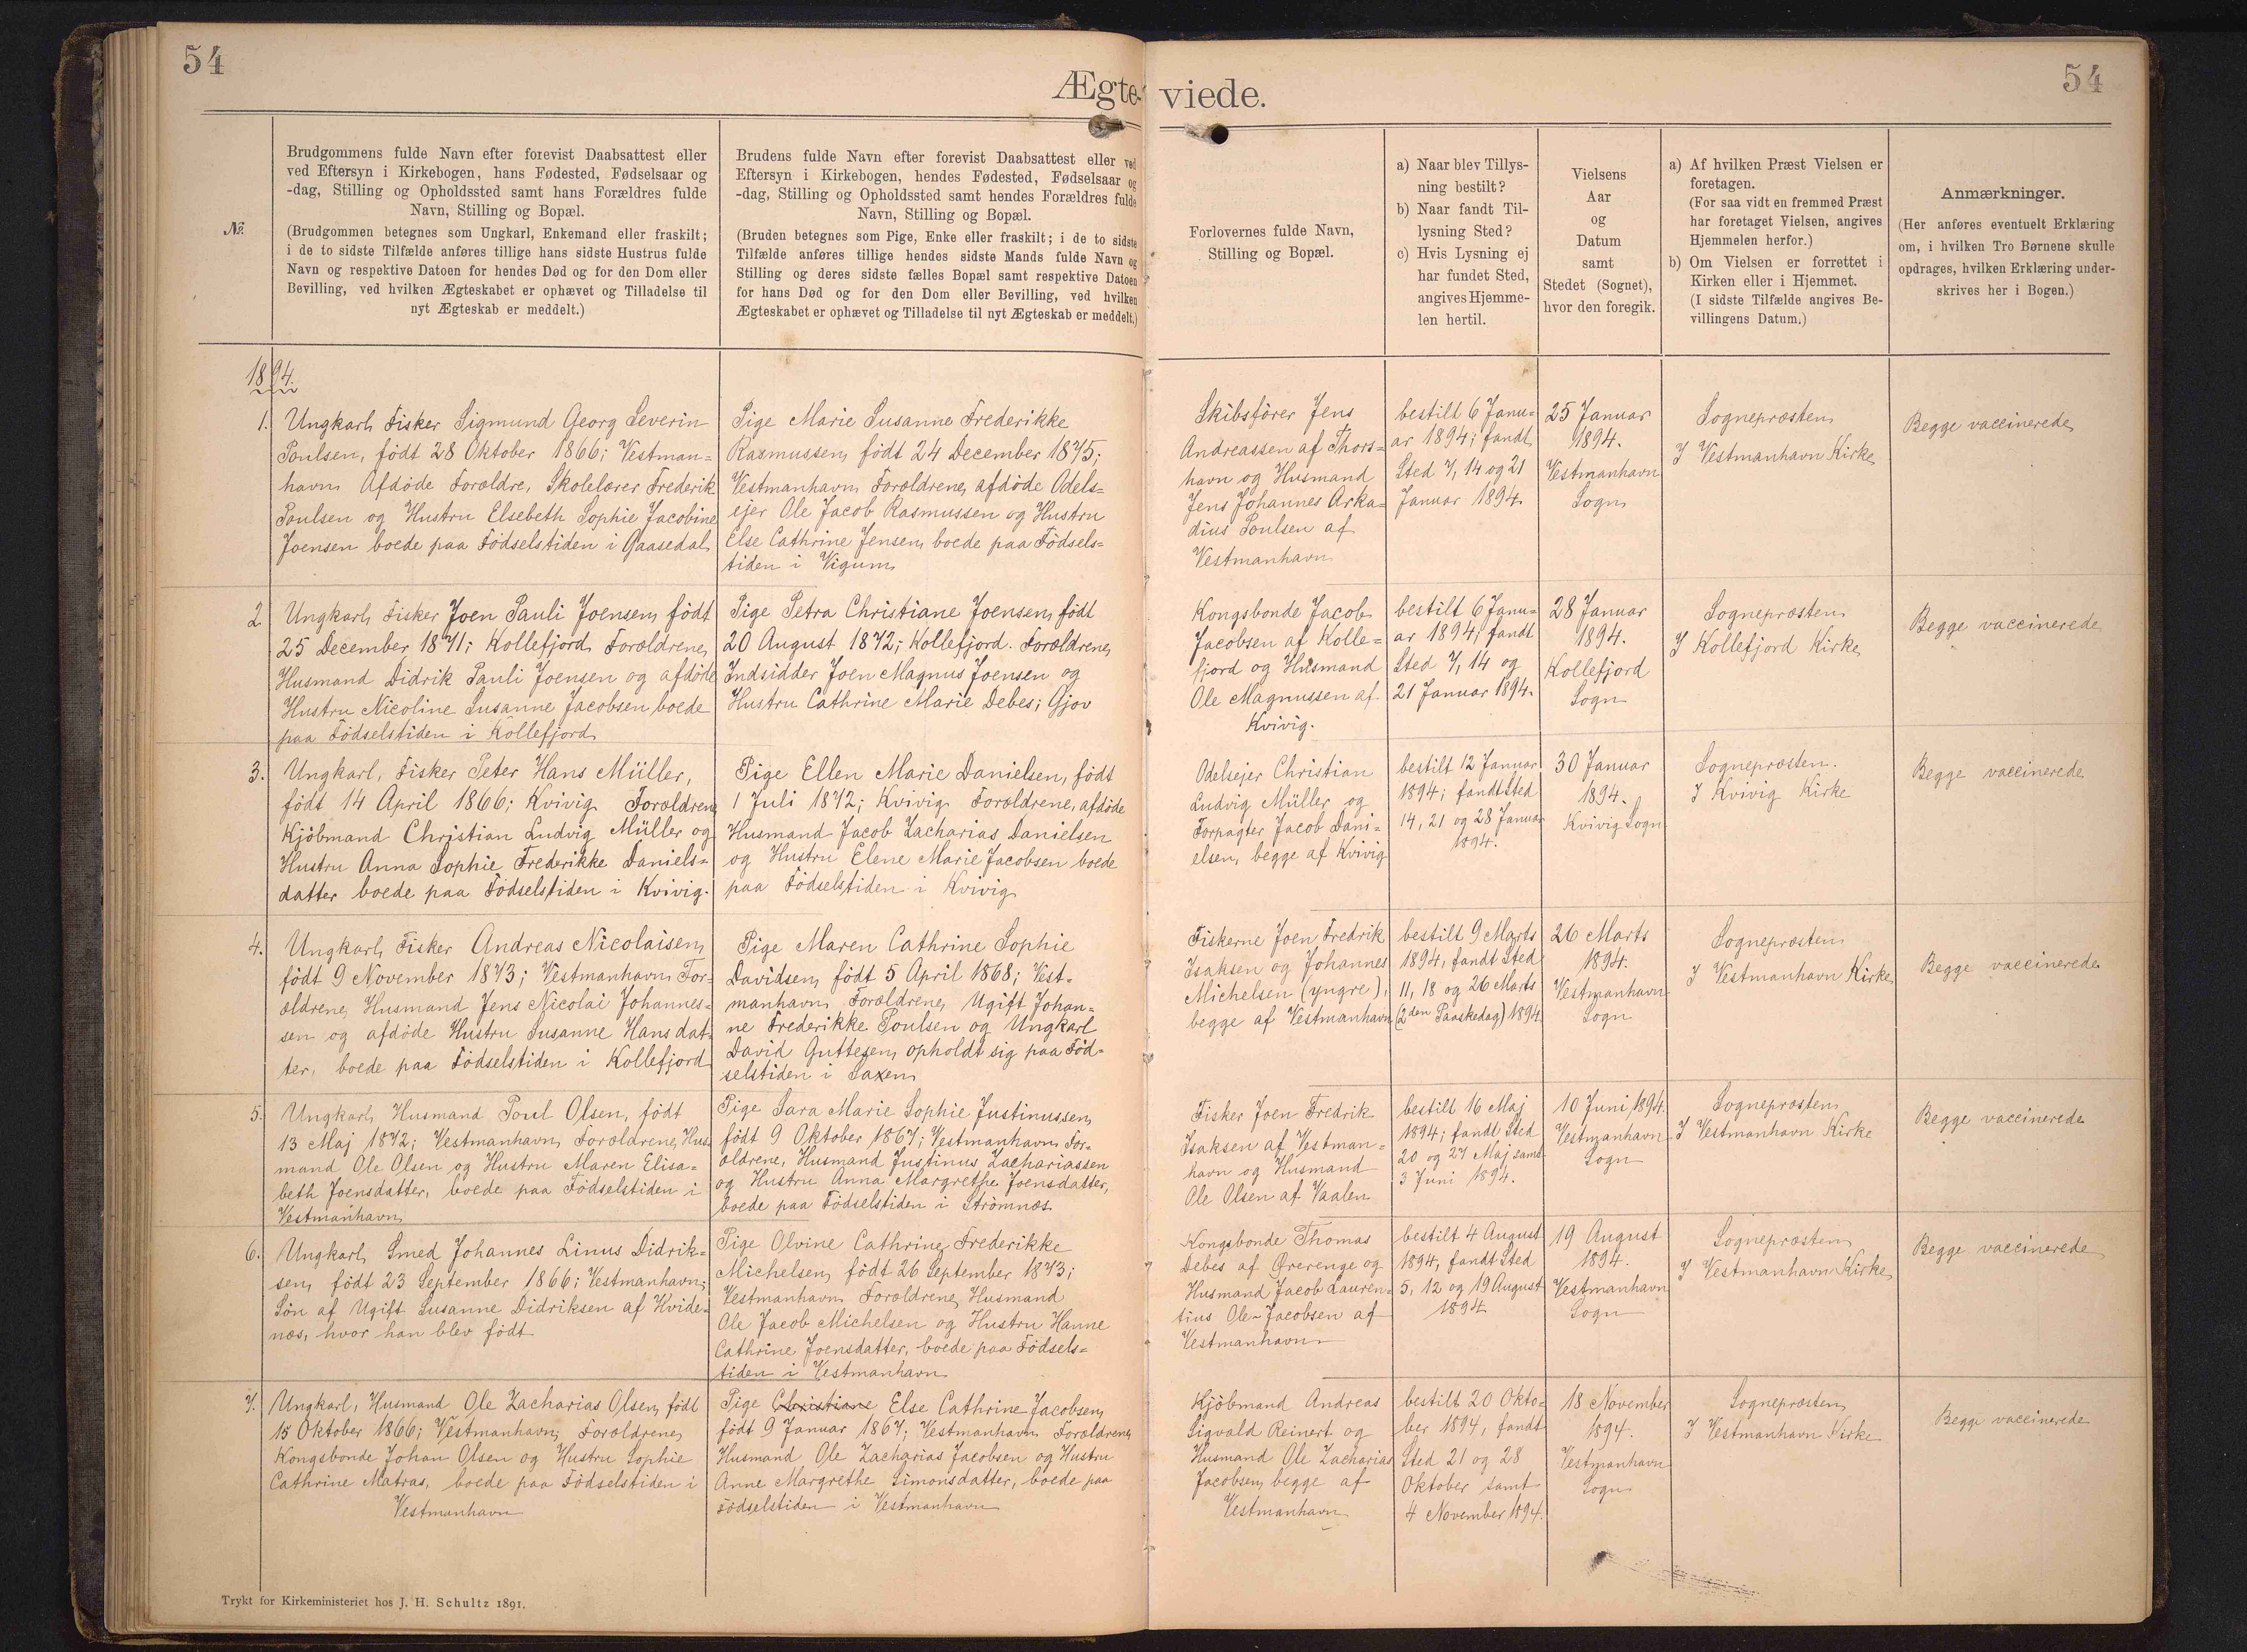 54
54
Ægte-
viede.
№.
Brudgommens fulde Navn efter forevist Daabsattest eller
ved Eftersyn i Kirkebogen, hans Fødested, Fødselsaar og
-dag, Stilling og Opholdssted samt hans Forældres fulde
Navn, Stilling og Bopæl.
(Brudgommen betegnes som Ungkarl, Enkemand eller fraskilt;
i de to sidste Tilfælde anføres tillige hans sidste Hustrus fulde
Navn og respektive Datoen for hendes Død og for den Dom eller
Bevilling, ved hvilken Ægteskabet er ophævet og Tilladelse til
nyt Ægteskab er meddelt.)
Brudens fulde Navn efter forevist Daabsattest eller ved
Eftersyn i Kirkebogen, hendes Fødested, Fødselsaar og
-dag, Stilling og Opholdssted samt hendes Forældres fulde
Navn, Stilling og Bopæl.
(Bruden betegnes som Pige, Enke eller fraskilt; i de to sidste
Tilfælde anføres tillige hendes sidste Mands fulde Navn og
Stilling og deres sidste fælles Bopæl samt respektive Datoen
for hans Død og for den Dom eller Bevilling, ved hvilken
Ægteskabet er ophævet og Tilladelse til nyt Ægteskab er meddelt.)
Forlovernes fulde Navn,
Stilling og Bopæl.
a) Naar blev Tillys-
ning bestilt?
b) Naar fandt Til-
lysning Sted?
c) Hvis Lysning ej
har fundet Sted,
angives Hjemme-
len hertil.
Vielsens
Aar
og
Datum
samt
Stedet (Sognet),
hvor den foregik.
a) Af hvilken Præst Vielsen er
foretagen.
(For saa vidt en fremmed Præst
har foretaget Vielsen, angives
Hjemmelen herfor.)
b) Om Vielsen er forrettet i
Kirken eller i Hjemmet.
(I sidste Tilfælde angives Be-
villingens Datum.)
Anmærkninger.
(Her anføres eventuelt Erklæring
om, i hvilken Tro Børnene skulle
opdrages, hvilken Erklæring under-
skrives her i Bogen.)
1894.
1.
Ungkarl, Fisker Sigmund Georg Severin
Poulsen, født 28 Oktober 1866; Vestman=
havn Afdøde Forældre, Skolelærer Frederik
Poulsen og Hustru Elsebeth Sophie Jacobine
Joensen boede paa Fødselstiden i Gaasedal
Pige Marie Susanne Frederikke
Rasmussen, født 24 December 1875;
Vestmanhavn Forældrene, afdøde Odels=
ejer Ole Jacob Rasmussen og Hustru
Else Cathrine Jensen, boede paa Fødsels=
tiden i Vigum
Skibsfører Jens
Andreassen af Thors=
havn og Husmand
Jens Johannes Arka=
dius Poulsen af
Vestmanhavn
bestilt 6 Janu=
ar 1894; fandt
Sted 7, 14 og 21
Januar 1894.
25 Januar
1894.
Vestmanhavn
Sogn
Sognepræsten
I Vestmanhavn Kirke
Begge vaccinerede
2.
Ungkarl, Fisker Joen Pauli Joensen, født
25 December 1871; Kollefjord Forældrene,
Husmand Didrik Pauli Joensen og afdøde
Hustru Nicoline Susanne Jacobsen boede
paa Fødselstiden i Kollefjord
Pige Petra Christiane Joensen, født
20 August 1872; Kollefjord. Forældrene,
Indsidder Joen Magnus Joensen og
Hustru Cathrine Marie Debes; Gjov
Kongsbonde Jacob
Jacobsen af Kolle=
fjord og Husmand
Ole Magnussen af
Kvivig.
bestilt 6 Janu=
ar 1894; fandt
Sted 7, 14 og
21 Januar 1894.
28 Januar
1894.
Kollefjord
Sogn
Sognepræsten
I Kollefjord Kirke
Begge vaccinerede
3.
Ungkarl, Fisker Peter Hans Müller,
født 14 April 1866; Kvivig Forældrene
Kjøbmand Christian Ludvig Müller og
Hustru Anna Sophie Frederikke Daniels=
datter boede paa Fødselstiden i Kvivig.
Pige Ellen Marie Danielsen, født
1 Juli 1872; Kvivig Forældrene, afdøde
Husmand Jacob Zacharias Danielsen
og Hustru Elene Marie Jacobsen boede
paa Fødselstiden i Kvivig
Odelsejer Christian
Ludvig Müller og
Forpagter Jacob Dani=
elsen, begge af Kvivig
bestilt 12 Januar
1894; fandt Sted
14, 21 og 28 Januar
1894.
30 Januar
1894.
Kvivig Sogn
Sognepræsten.
I Kvivig Kirke
Begge vaccinerede
4.
Ungkarl, Fisker Andreas Nicolaisen,
født 9 November 1873; Vestmanhavn For=
ældrene, Husmand Jens Nicolai Johannes=
sen og afdøde Hustru Susanne Hansdat=
ter, boede paa Fødselstiden i Kollefjord
Pige Maren Cathrine Sophie
Davidsen, født 5 April 1868; Vest=
manhavn Forældrene, Ugift Johan=
ne Frederikke Poulsen og Ungkarl
David Guttesen, opholdt sig paa Fød=
selstiden i Saxen
Fiskerne Joen Fredrik
Isaksen og Johannes
Michelsen (yngre),
begge af Vestmanhavn
bestilt 9 Marts
1894, fandt Sted
11, 18 og 26 Marts
(2den Paaskedag) 1894
26 Marts
1894.
Vestmanhavn
Sogn
Sognepræsten
I Vestmanhavn Kirke
Begge vaccinerede
5.
Ungkarl, Husmand Poul Olsen, født
13 Maj 1872; Vestmanhavn, Forældrene, Hus=
mand Ole Olsen og Hustru Maren Elisa=
beth Joensdatter, boede paa Fødselstiden i
Vestmanhavn
Pige Sara Marie Sophie Justinussen,
født 9 Oktober 1867; Vestmanhavn For=
ældrene, Husmand Justinus Zachariassen
og Hustru Anna Margrethe Joensdatter,
boede paa Fødselstiden i Strømnæs
Fisker Joen Fredrik
Isaksen af Vestman=
havn og Husmand
Ole Olsen af Vaalen
bestilt 16 Maj
1894; fandt Sted
20 og 27 Maj samt
3 Juni 1894.
10 Juni 1894.
Vestmanhavn
Sogn
Sognepræsten
I Vestmanhavn Kirke
Begge vaccinerede
6.
Ungkarl, Smed Johannes Linus Didrik=
sen, født 23 September 1866; Vestmanhavn;
Søn af Ugift Susanne Didriksen af Hvide=
næs, hvor han blev født
Pige Olvine Cathrine Frederikke
Michelsen, født 26 September 1873;
Vestmanhavn Forældrene, Husmand
Ole Jacob Michelsen og Hustru Hanne
Cathrine Joensdatter, boede paa Fødsels=
tiden i Vestmanhavn
Kongsbonde Thomas
Debes af Ørerenge og
Husmand Jacob Lauren=
tius Ole-Jacobsen af
Vestmanhavn
bestilt 4 August
1894, fandt Sted
5, 12 og 19 August
1894
19 August
1894.
Vestmanhavn
Sogn
Sognepræsten
I Vestmanhavn Kirke
Begge vaccinerede
7.
Ungkarl, Husmand Ole Zacharias Olsen, født
15 Oktober 1866; Vestmanhavn; Forældrene,
Kongsbonde Johan Olsen og Hustru Sophie
Cathrine Matras, boede paa Fødselstiden i
Vestmanhavn
Pige Christiane Else Cathrine Jacobsen,
født 9 Januar 1867; Vestmanhavn Forældrene,
Husmand Ole Zacharias Jacobsen og Hustru
Anne Margrethe Simonsdatter, boede paa
Fødselstiden i Vestmanhavn
Kjøbmand Andreas
Sigvald Reinert og
Husmand Ole Zacharias
Jacobsen, begge af
Vestmanhavn
bestilt 20 Okto=
ber 1894, fandt
Sted 21 og 28
Oktober samt
4 November 1894.
18 November
1894.
Vestmanhavn
Sogn
Sognepræsten
I Vestmanhavn Kirke
Begge vaccinerede
Trykt for Kirkeministeriet hos J. H. Schultz 1891.